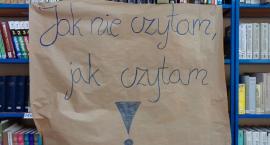 Jak nie czytam,
jak czytam
!